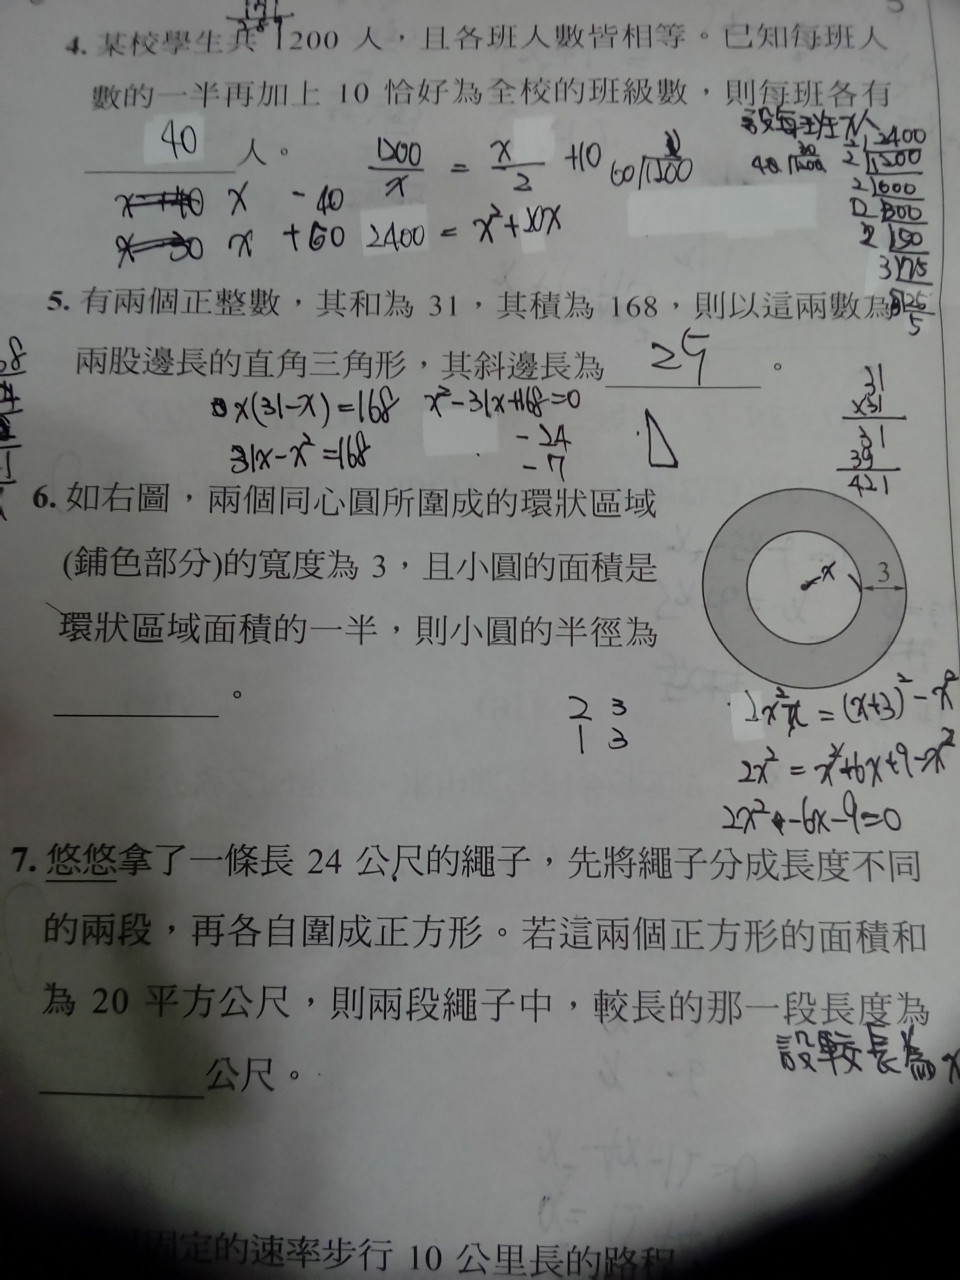 4. 某校學生共 1200 人，且各班人數皆相等。已知每班人
數的一半再加上 10 恰好為全校的班級數，則每班各有
40 人。
設每班 x 人
1200/x = x/2 +10
60 1200
40 1200
x - 40
x + 60
2400 = x²+20x
2 2400
2 1200
2 600
2 300
2 150
3 75
5 25
5
5. 有兩個正整數，其和為 31，其積為 168，則以這兩數為
兩股邊長的直角三角形，其斜邊長為 25 。
x(31-x)=168 x²-31x+168=0
31x-x²=168
-24
-7
31
x31
31
39
421
6. 如右圖，兩個同心圓所圍成的環狀區域
(鋪色部分)的寬度為 3，且小圓的面積是
環狀區域面積的一半，則小圓的半徑為
。
x 3
2 3
1 3
2x²π = (x+3)² - x²
2x² = x²+6x+9-x²
2x²-6x-9=0
7. 悠悠拿了一條長 24 公尺的繩子，先將繩子分成長度不同
的兩段，再各自圍成正方形。若這兩個正方形的面積和
為 20 平方公尺，則兩段繩子中，較長的那一段長度為
公尺。
設較長為 x
固定的速率步行 10 公里長的路程